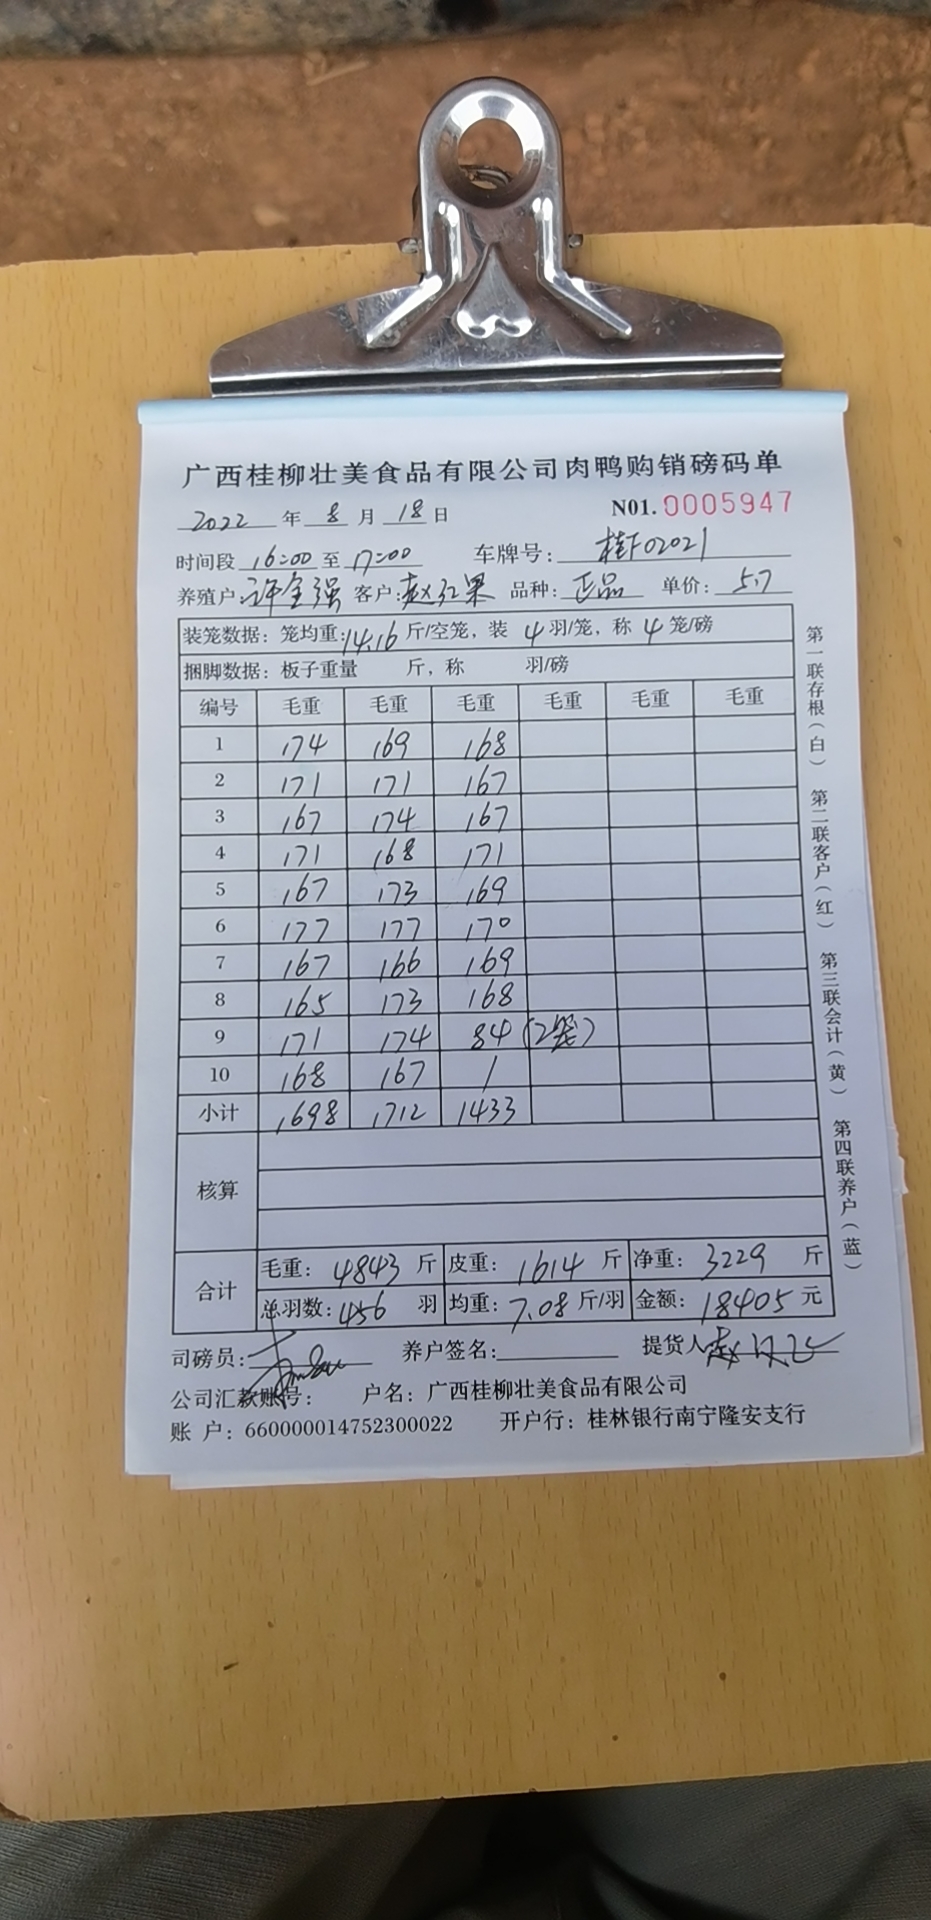 广西桂柳壮美食品有限公司肉鸭购销磅码单
2022 年 8 月 18 日 N01. 0005947
时间段 16:00 至 17:00 车牌号: 桂F02021
养殖户: 许全强 客户: 赵红果 品种: 正品 单价: 5.7
装笼数据: 笼均重: 14.16 斤/空笼, 装 4 羽/笼, 称 4 笼/磅
捆脚数据: 板子重量 斤, 称 羽/磅
编号 毛重 毛重 毛重 毛重 毛重 毛重
1 174 169 168
2 171 171 167
3 167 174 167
4 171 168 171
5 167 173 169
6 177 177 170
7 167 166 169
8 165 173 168
9 171 174 84 (2笼)
10 168 167 /
小计 1698 1712 1433
核算
合计 毛重: 4843 斤 皮重: 1614 斤 净重: 3229 斤
总羽数: 456 羽 均重: 7.08 斤/羽 金额: 18405 元
司磅员: 养户签名: 提货人
公司汇款账号: 户名: 广西桂柳壮美食品有限公司
账 户: 660000014752300022 开户行: 桂林银行南宁隆安支行
第一联存根(白) 第二联客户(红) 第三联会计(黄) 第四联养户(蓝)